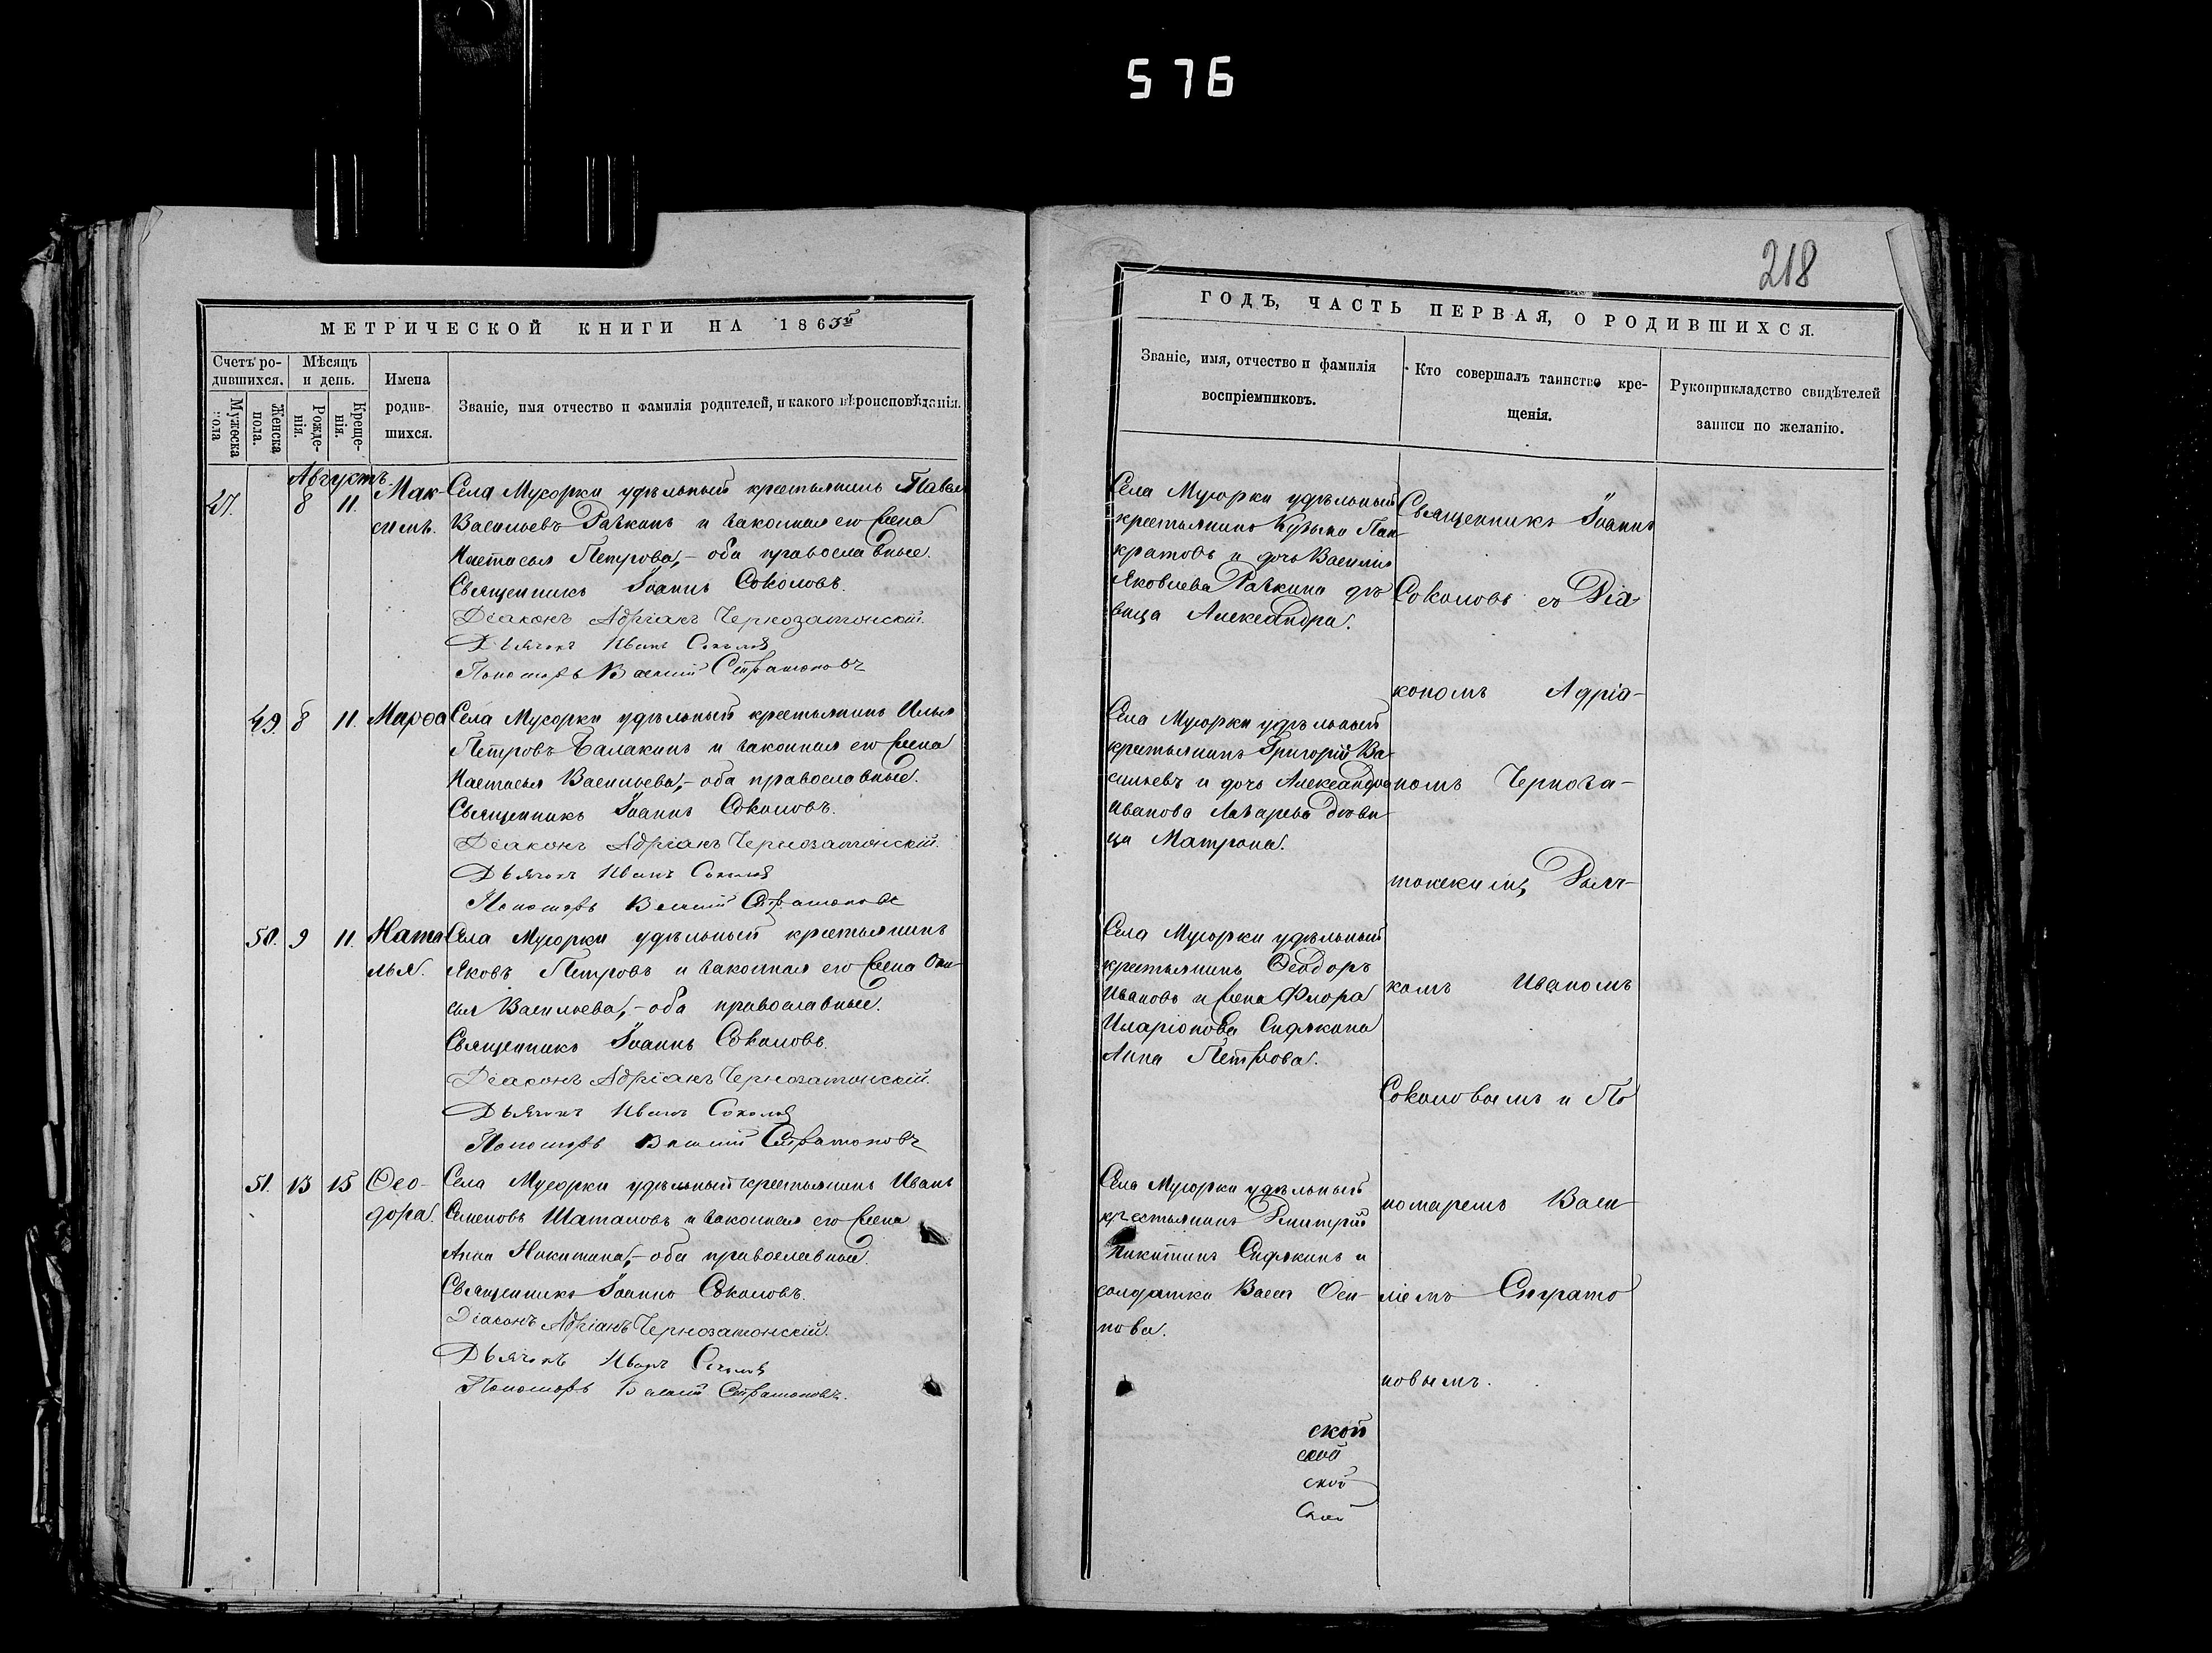 576
218
МЕТРИЧЕСКОЙ КНИГИ НА 1863й
Счетъ ро-
дившихся.
Мѣсяцъ
и день.
Имена
родив-
шихся.
Мужеска
пола
Женска
пола.
Рожде-
нія.
Креще-
нія.
Званіе, имя отчество и фамилія родителей, и какого вѣроисповѣданія.
Августъ.
8 11. Мак-
симъ.
Села Мусорки удѣльный крестьянинъ Павелъ
Васильевъ и законная его жена
Настасья Петрова, – оба православные.
Священникъ Іоаннъ Соколовъ.
Діаконъ Адріанъ Чернозатонскій.
Дьячокъ Иванъ Соколовъ
Пономарь Василій Стратоновъ
49. 8 11. Марѳа
Села Мусорки удѣльный крестьянинъ Илья
Петровъ Балакинъ и законная его жена
Настасья Васильева, – оба православные.
Священникъ Іоаннъ Соколовъ.
Діаконъ Адріанъ Чернозатонскій.
Дьячокъ Иванъ Соколовъ
Пономарь Василій Стратоновъ
50. 9 11. Ната
лья.
Села Мусорки удѣльный крестьянинъ
Яковъ Петровъ и законная его жена
Васильева, – оба православные.
Священникъ Іоаннъ Соколовъ.
Діаконъ Адріанъ Чернозатонскій.
Дьячокъ Иванъ Соколовъ
Пономарь Василій Стратоновъ
51. 13 15 Ѳео-
дора.
Села Мусорки удѣльный крестьянинъ Иванъ
Семеновъ Шаталовъ и законная его жена
Анна Никитина, – оба православные.
Священникъ Іоаннъ Соколовъ.
Діаконъ Адріанъ Чернозатонскій.
Дьячокъ Иванъ Соколовъ
Пономарь Василій Стратоновъ.
ГОДЪ, ЧАСТЬ ПЕРВАЯ, О РОДИВШИХСЯ.
Званіе, имя, отчество и фамилія
воспріемниковъ.
Кто совершалъ таинство кре-
щенія.
Рукоприкладство свидѣтелей
записи по желанію.
Села Мусорки удѣльный
крестьянинъ Кузьма Пан
кратовъ и дочь Василія
Яковлева дѣ
вица Александра.
Села Мусорки удѣльный
крестьянинъ Григорій Ва
сильевъ и дочь Александра
Иванова Лазарева дѣви
ца Матрона.
Села Мусорки удѣльный
крестьянинъ Ѳеодоръ
Ивановъ и жена Флора
Иларіонова Сидякина
Анна Петрова.
Села Мусорки удѣльный
крестьянинъ Димитрій
Никитинъ Сидякинъ и
солдатка Васса Оси
пова.
Священникъ Іоаннъ
Соколовъ съ Діа
кономъ Адріа-
номъ Черноза-
тонскимъ, Дьяч-
комъ Иваномъ
Соколовымъ и По
номаремъ Васи
ліемъ Страто
новымъ.
ской
ской
ской